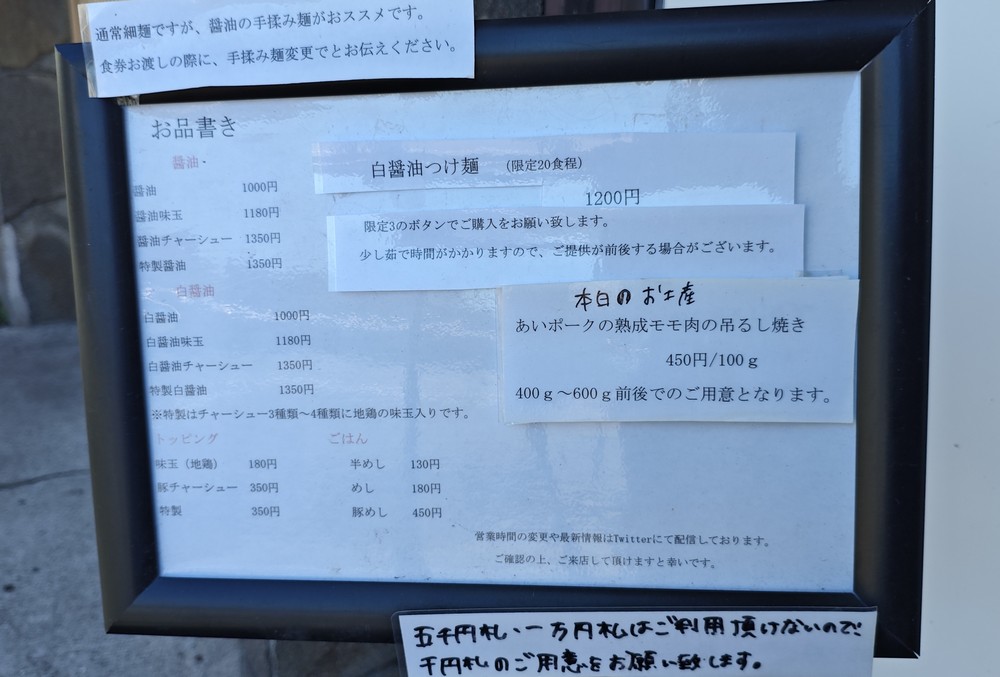 通常細麺ですが、醤油の手揉み麺がおススメです。
食券お渡しの際に、手揉み麺変更でとお伝えください。
お品書き
醤油
醤油 1000円
醤油味玉 1180円
醤油チャーシュー 1350円
特製醤油 1350円
白醤油
白醤油 1000円
白醤油味玉 1180円
白醤油チャーシュー 1350円
特製白醤油 1350円
※特製はチャーシュー3種類～4種類に地鶏の味玉入りです。
トッピング
味玉（地鶏） 180円
豚チャーシュー 350円
特製 350円
ごはん
半めし 130円
めし 180円
豚めし 450円
白醤油つけ麺 （限定20食程）
1200円
限定3のボタンでご購入をお願い致します。
少し茹で時間がかかりますので、ご提供が前後する場合がございます。
本日のお土産
あいポークの熟成モモ肉の吊るし焼き
450円/100ｇ
400ｇ～600ｇ前後でのご用意となります。
営業時間の変更や最新情報はTwitterにて配信しております。
ご確認の上、ご来店して頂けますと幸いです。
五千円札、一万円札はご利用頂けないので、
千円札のご用意をお願い致します。